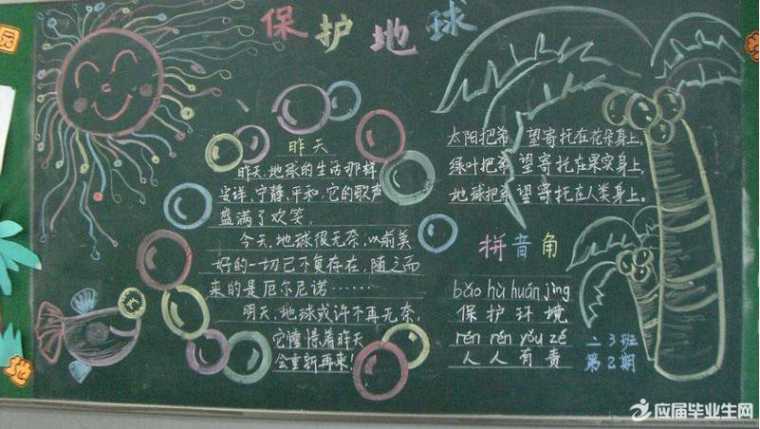 保护地球
昨天
昨天,地球的生活那样
安详,宁静,平和,它的歌声
盛满了欢笑.
今天,地球很无奈,以前美
好的一切已不复存在,随之而
来的是厄尔尼诺……
明天,地球或许不再无奈,
它憧憬着昨天
会重新再来!
太阳把希望寄托在花朵身上,
绿叶把希望寄托在果实身上,
地球把希望寄托在人类身上。
拼音角
bǎo hù huán jìng
保护环境
rén rén yǒu zé
人人有责
二3班
第2期
园
地
应届毕业生网